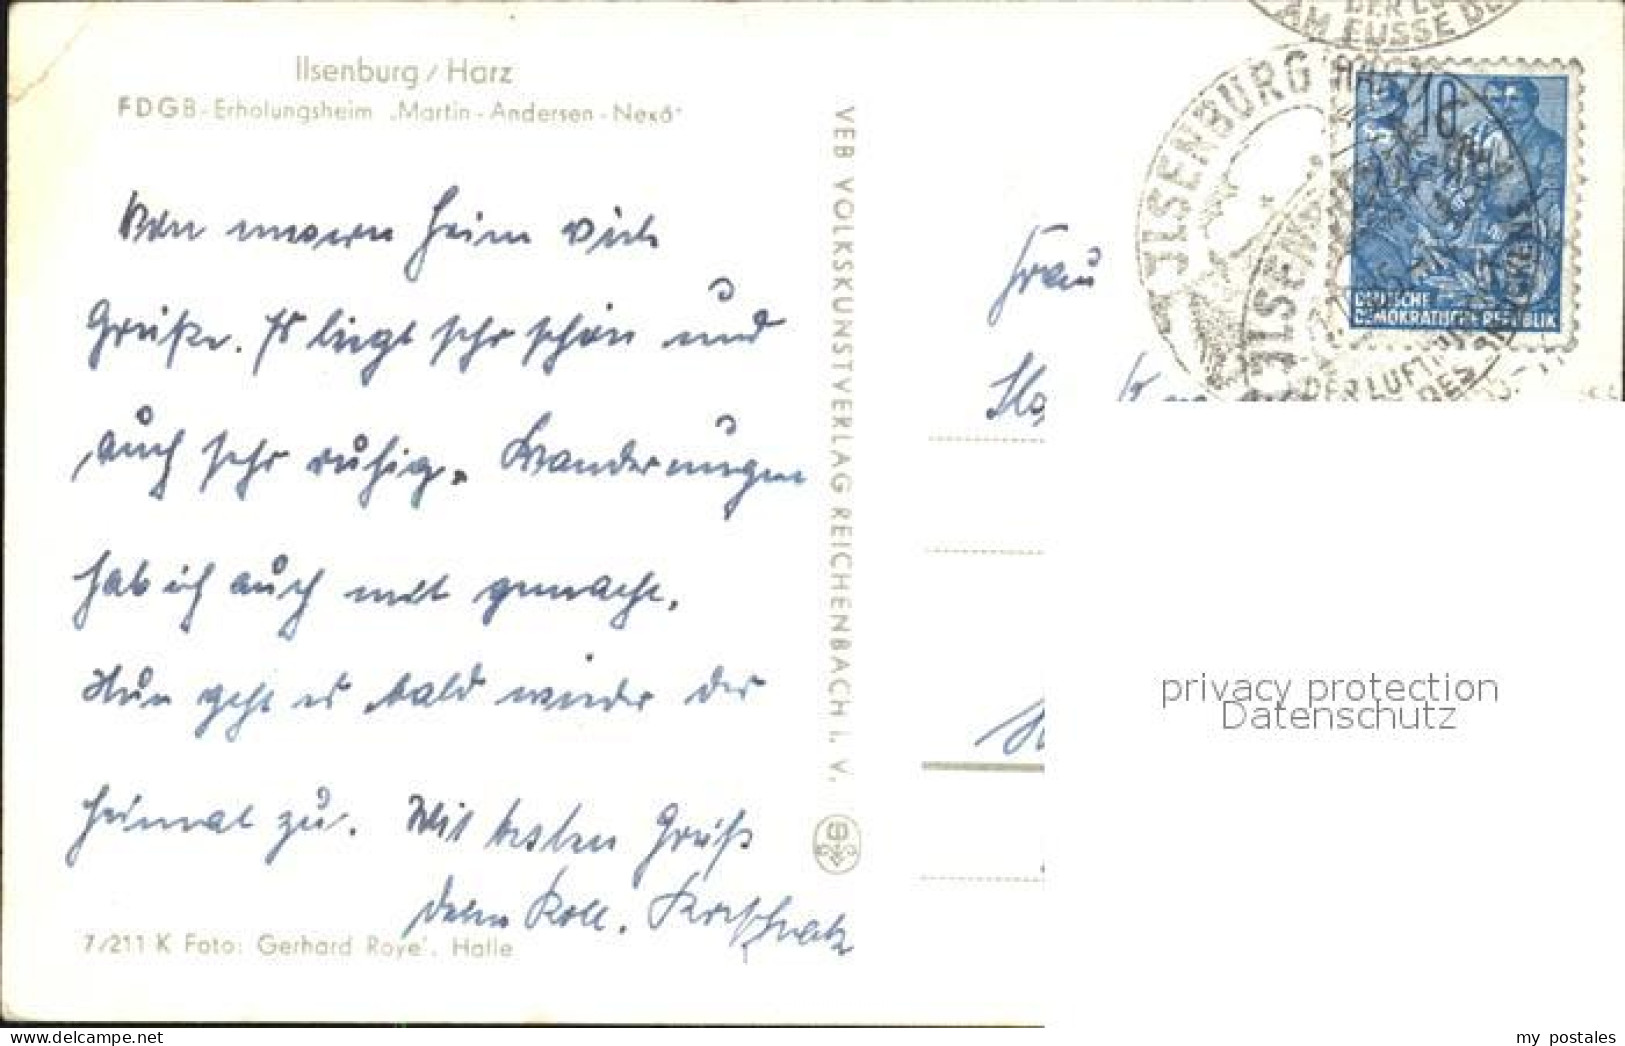 Ilsenburg / Harz
FDGB-Erholungsheim „Martin-Andersen-Nexö"
Von unsern Heim viele
Grüße. Es liegt sehr schön und
auch sehr ruhig. Wanderungen
hab ich auch mit gemacht.
Nun geht es bald wieder der
Heimat zu. Mit besten Gruß
dein Koll.
7/211 K Foto: Gerhard Roye', Halle
VEB VOLKSKUNSTVERLAG REICHENBACH i. V.
DER LU
AM FUSSE DE
ILSENBURG HARZ
ILSENB
DER LUFT
DES
10
DEUTSCHE
DEMOKRATISCHE REPUBLIK
Frau
privacy protection
Datenschutz
my postales